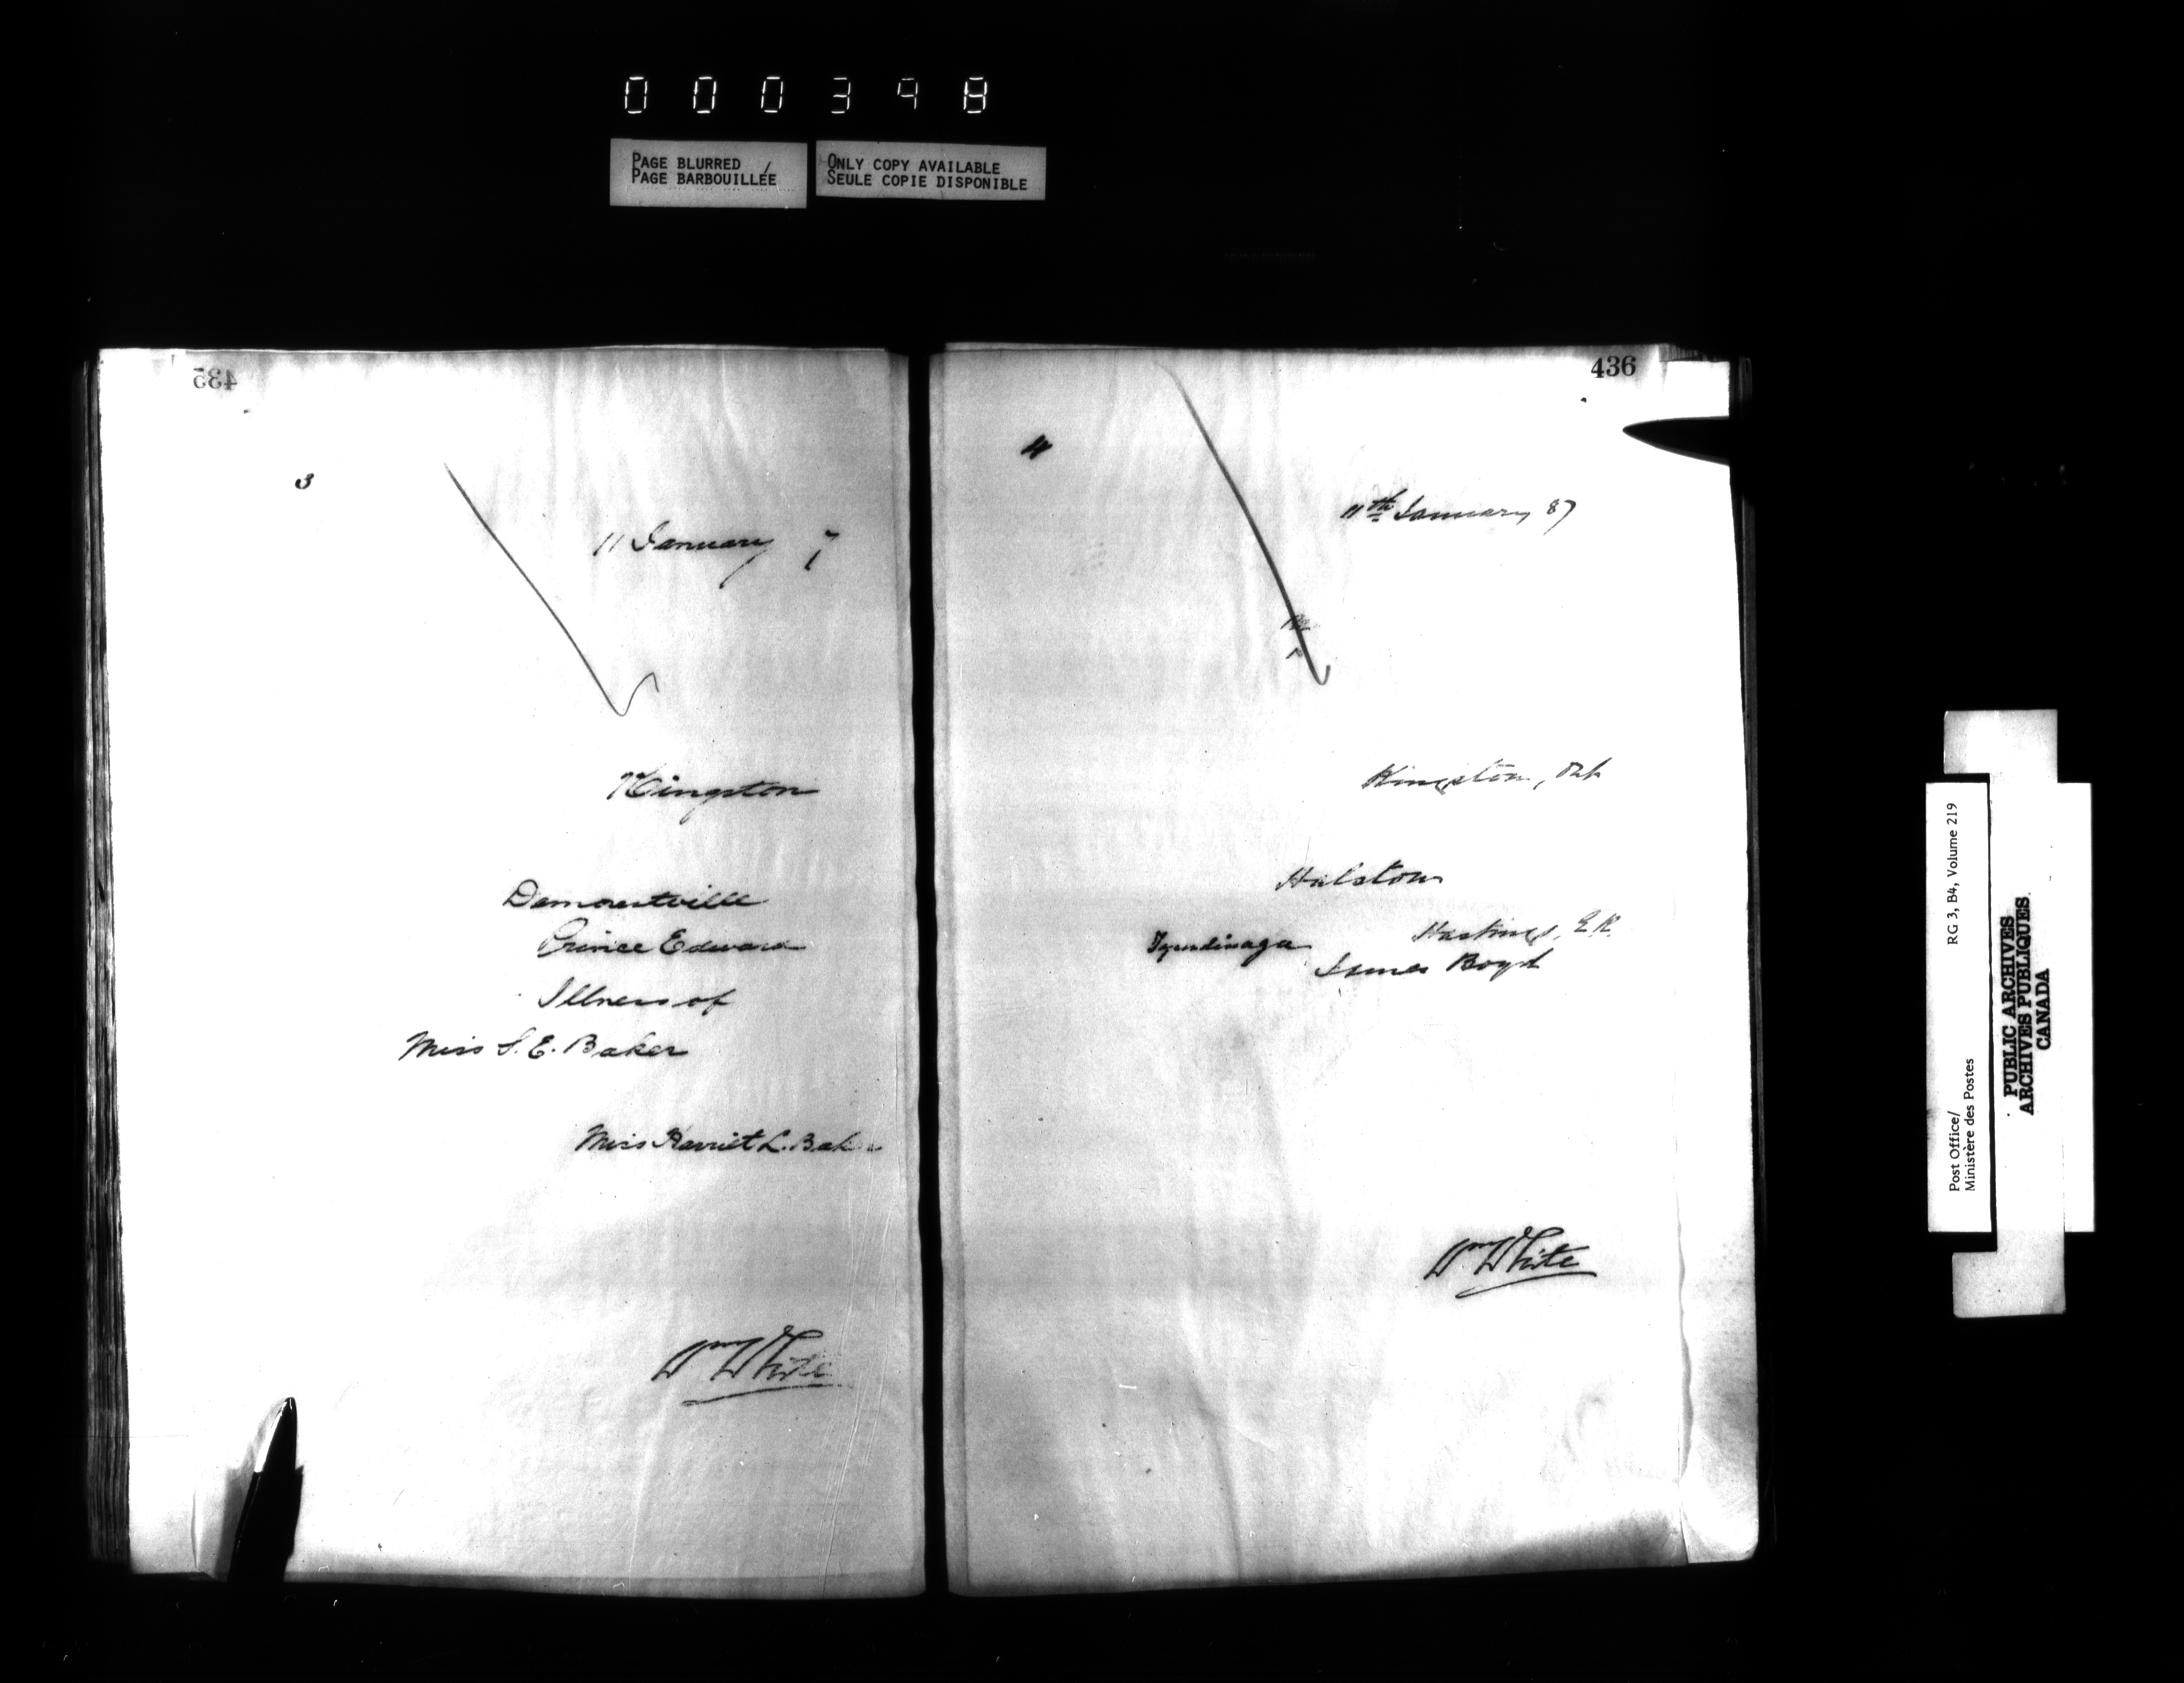 000398
PAGE BLURRED
PAGE BARBOUILLÉE
ONLY COPY AVAILABLE
SEULE COPIE DISPONIBLE
435
3
11 January 7
Kingston
Demorestville
Prince Edward
Illness of
Miss S. E. Baker
Miss Harriet L. Baker
Wm White
436
4
11th January 87
Kingston, Ont
Halston
Hastings, E.R.
Tyendinaga
James Boyd
Wm White
Post Office/
Ministère des Postes
RG 3, B4, Volume 219
PUBLIC ARCHIVES
ARCHIVES PUBLIQUES
CANADA